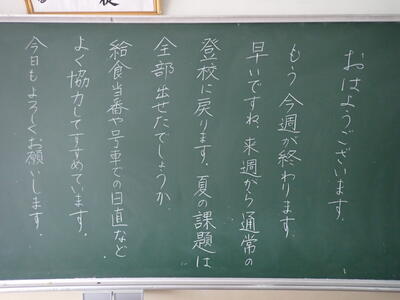 おはようございます.
もう今週が終わります.
早いですね.来週から通常の
登校に戻ります.夏の課題は
全部出せたでしょうか.
給食当番や号車での日直など
よく協力してすすめています.
今日もよろしくお願いします.